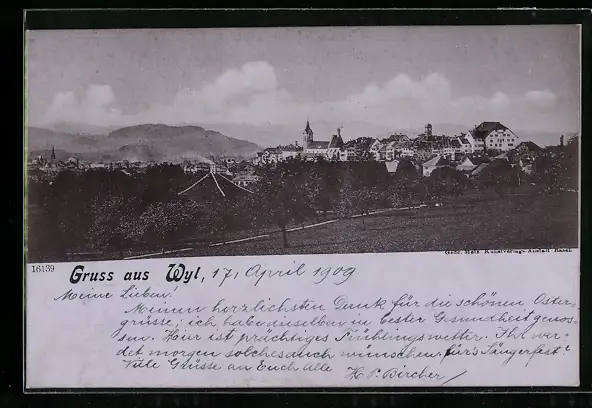 Gebr. Metz Kunstverlags-Anstalt Basel
16139
Gruss aus Wyl, 17. April 1909.
Meine Lieben.
Meinen herzlichsten Dank für die schönen Oster-
grüsse; ich habe dieselben in bester Gesundheit genos-
sen. Hier ist prächtiges Frühlingswetter. Ihr wer-
det morgen solches auch wünschen für's Sängerfest!
Viele Grüsse an Euch Alle H. P. Bircher